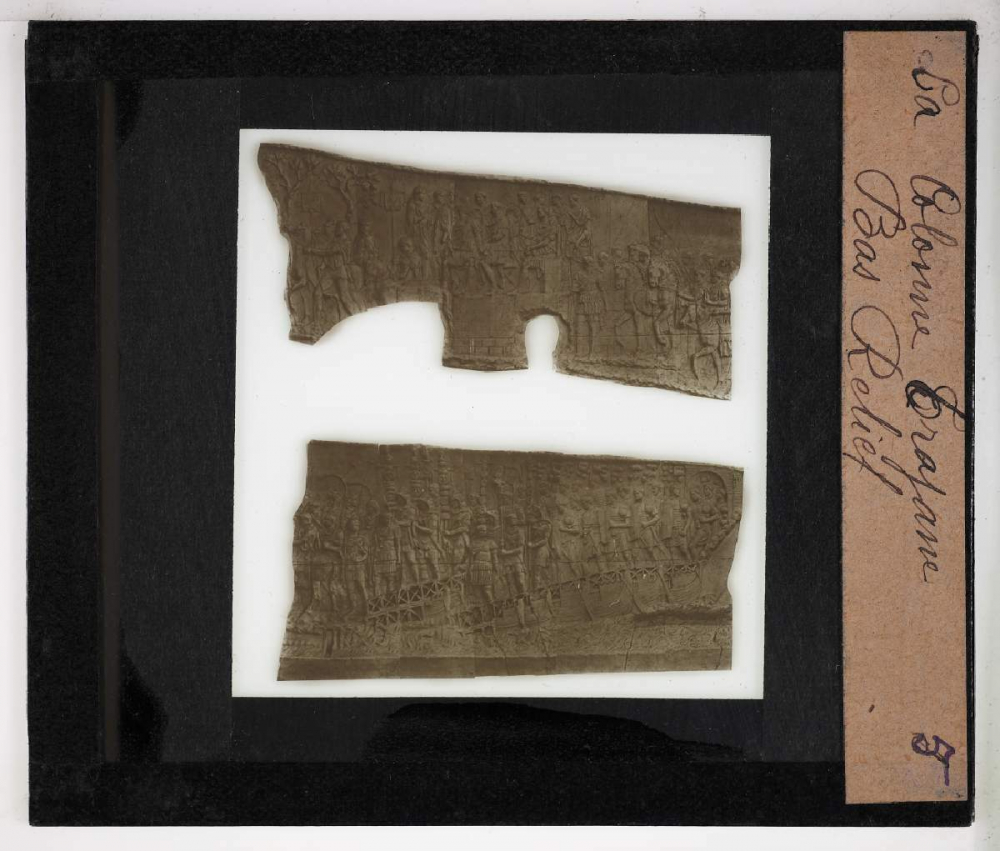 La Colonne Trajane
Bas Relief
5